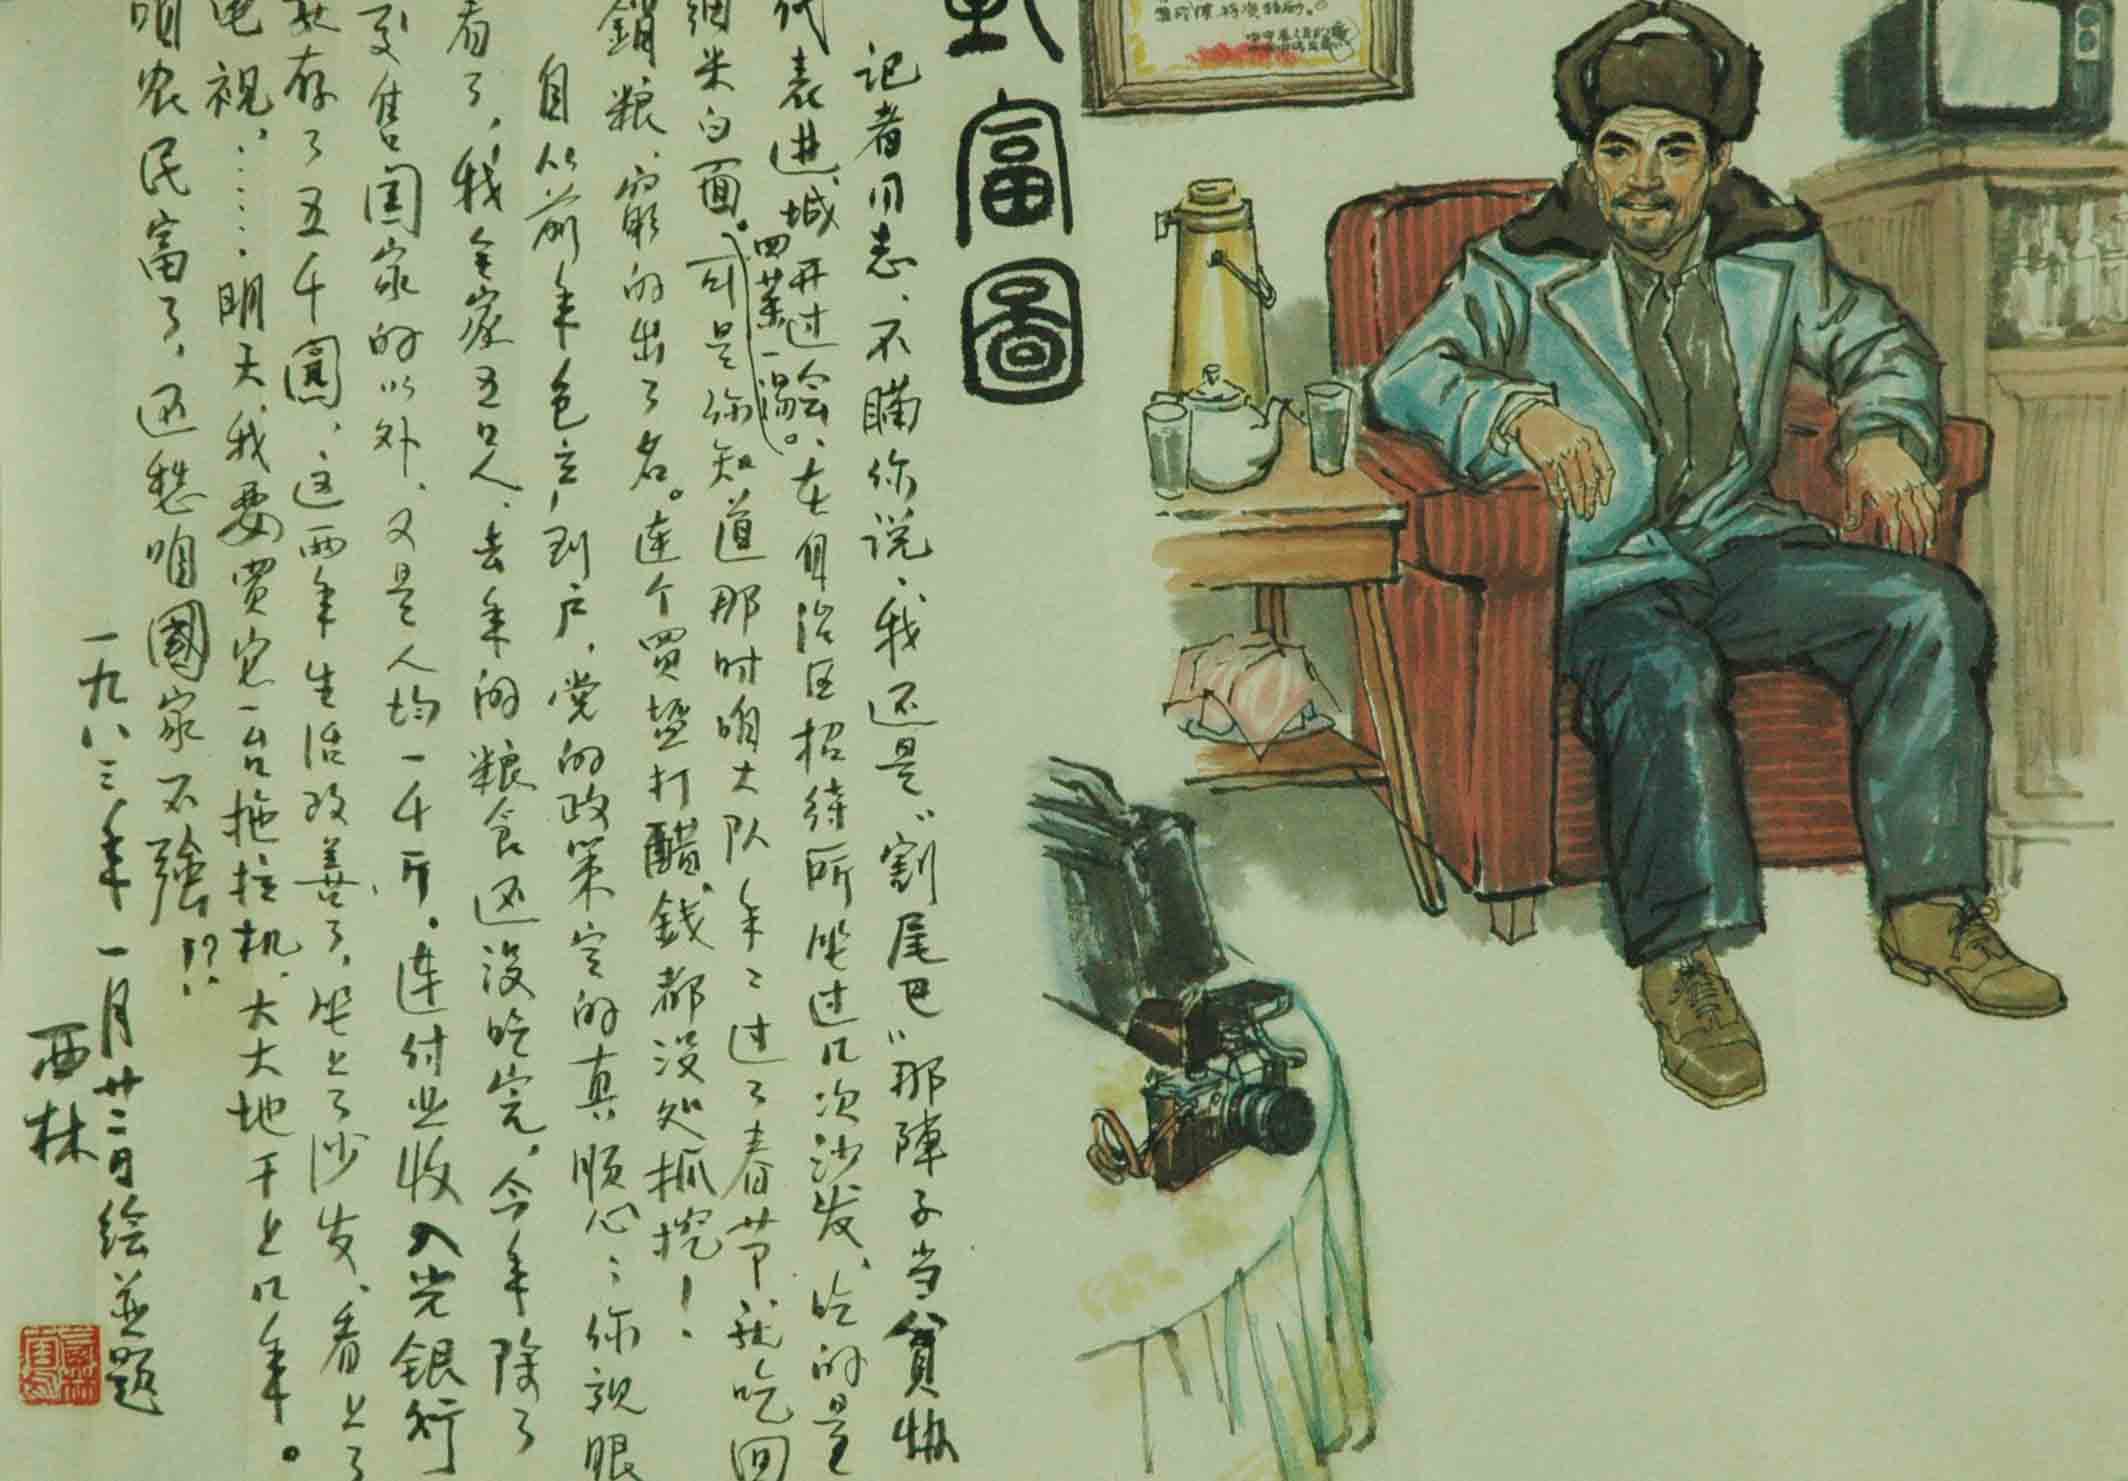 富圖
记者同志、不瞒你说、我还是“割尾巴”那陣子当貧协
代表进城开过会、在自治区招待所坐过几次沙发、吃的是
四菜一湯。
细米白面。可是你知道那时咱大队年年过了春节就吃回
銷粮、窮的出了名。连个買塩打醋錢都没处抓挖！
自从前年包产到户，党的政策定的真顺心；你親眼
看了，我全家五口人、去年的粮食还没吃完。今年除了
交售国家的以外、又是人均一千斤。连付业收入光銀行
就存了五千圓、这两年生活改善了，坐上了沙发、看上了
电视，……明天我要買它一台拖拉机、大大地干上几年。
咱农民富了，还愁咱國家不強！？
一九八三年一月廿二日绘並題
西林